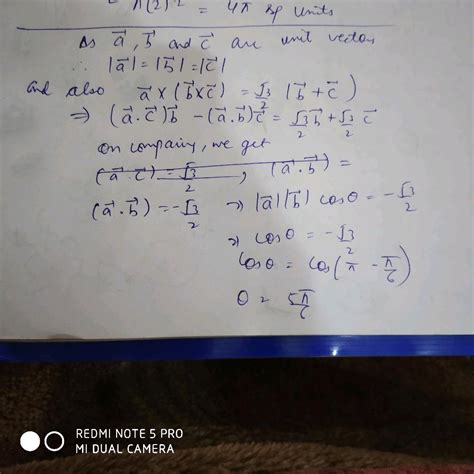 = π(2)² = 4π sq units
As a⃗, b⃗ and c⃗ are unit vectors
∴ |a⃗| = |b⃗| = |c⃗|
and also a⃗ × (b⃗ × c⃗) = √3/2 (b⃗ + c⃗)
⇒ (a⃗.c⃗)b⃗ - (a⃗.b⃗)c⃗ = √3/2 b⃗ + √3/2 c⃗
on comparing, we get
(a⃗.c⃗) = √3/2 , (a⃗.b⃗) =
(a⃗.b⃗) = -√3/2 ⇒ |a⃗||b⃗| cosθ = -√3/2
⇒ cosθ = -√3/2
cosθ = cos(π - π/6)
θ = 5π/6
REDMI NOTE 5 PRO
MI DUAL CAMERA